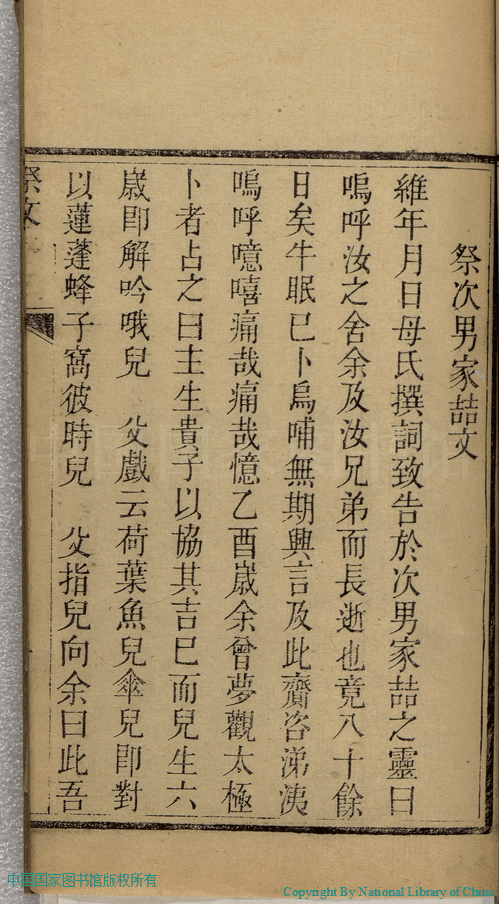 祭次男家喆文
維年月日母氏撰詞致告於次男家喆之靈曰
嗚呼汝之舍余及汝兄弟而長逝也竟八十餘
日矣牛眠已卜烏哺無期興言及此齎咨涕洟
嗚呼噫嘻痛哉痛哉憶乙酉嵗余曾夢觀太極
卜者占之曰主生貴子以協其吉巳而兒生六
嵗即解吟哦兒 父戲云荷葉魚兒傘兒即對
以蓮蓬蜂子窩彼時兒 父指兒向余曰此吾
祭文
中国国家图书馆版权所有
Copyright By National Library of China